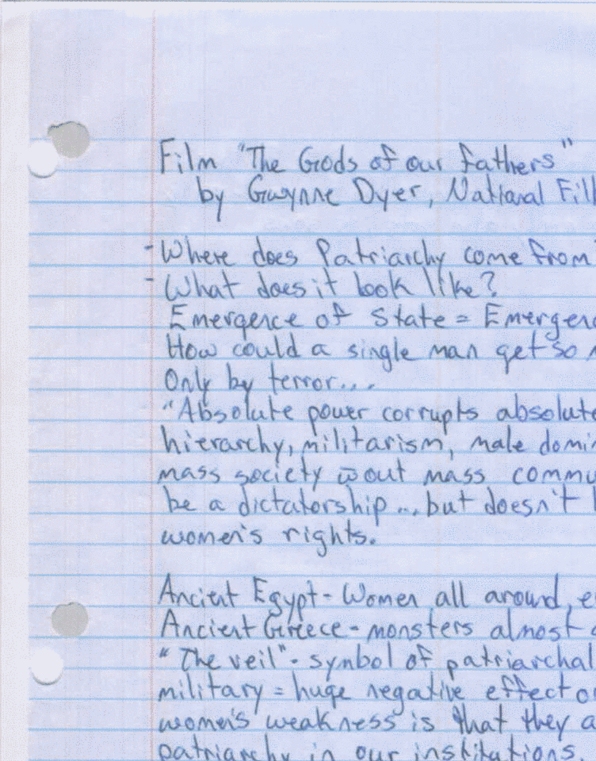 Film "The Gods of our fathers"
by Gwynne Dyer, National Fil
- Where does Patriarchy come from
- What does it look like?
Emergence of State = Emergen
How could a single man get so
Only by terror...
"Absolute power corrupts absolute
hierarchy, militarism, male domi
mass society w̄out mass commu
be a dictatorship... but doesn't
women's rights.
Ancient Egypt - Women all around, e
Ancient Greece - monsters almost
"The veil" - symbol of patriarchal
military = huge negative effect o
women's weakness is that they a
patriarchy in our institutions.